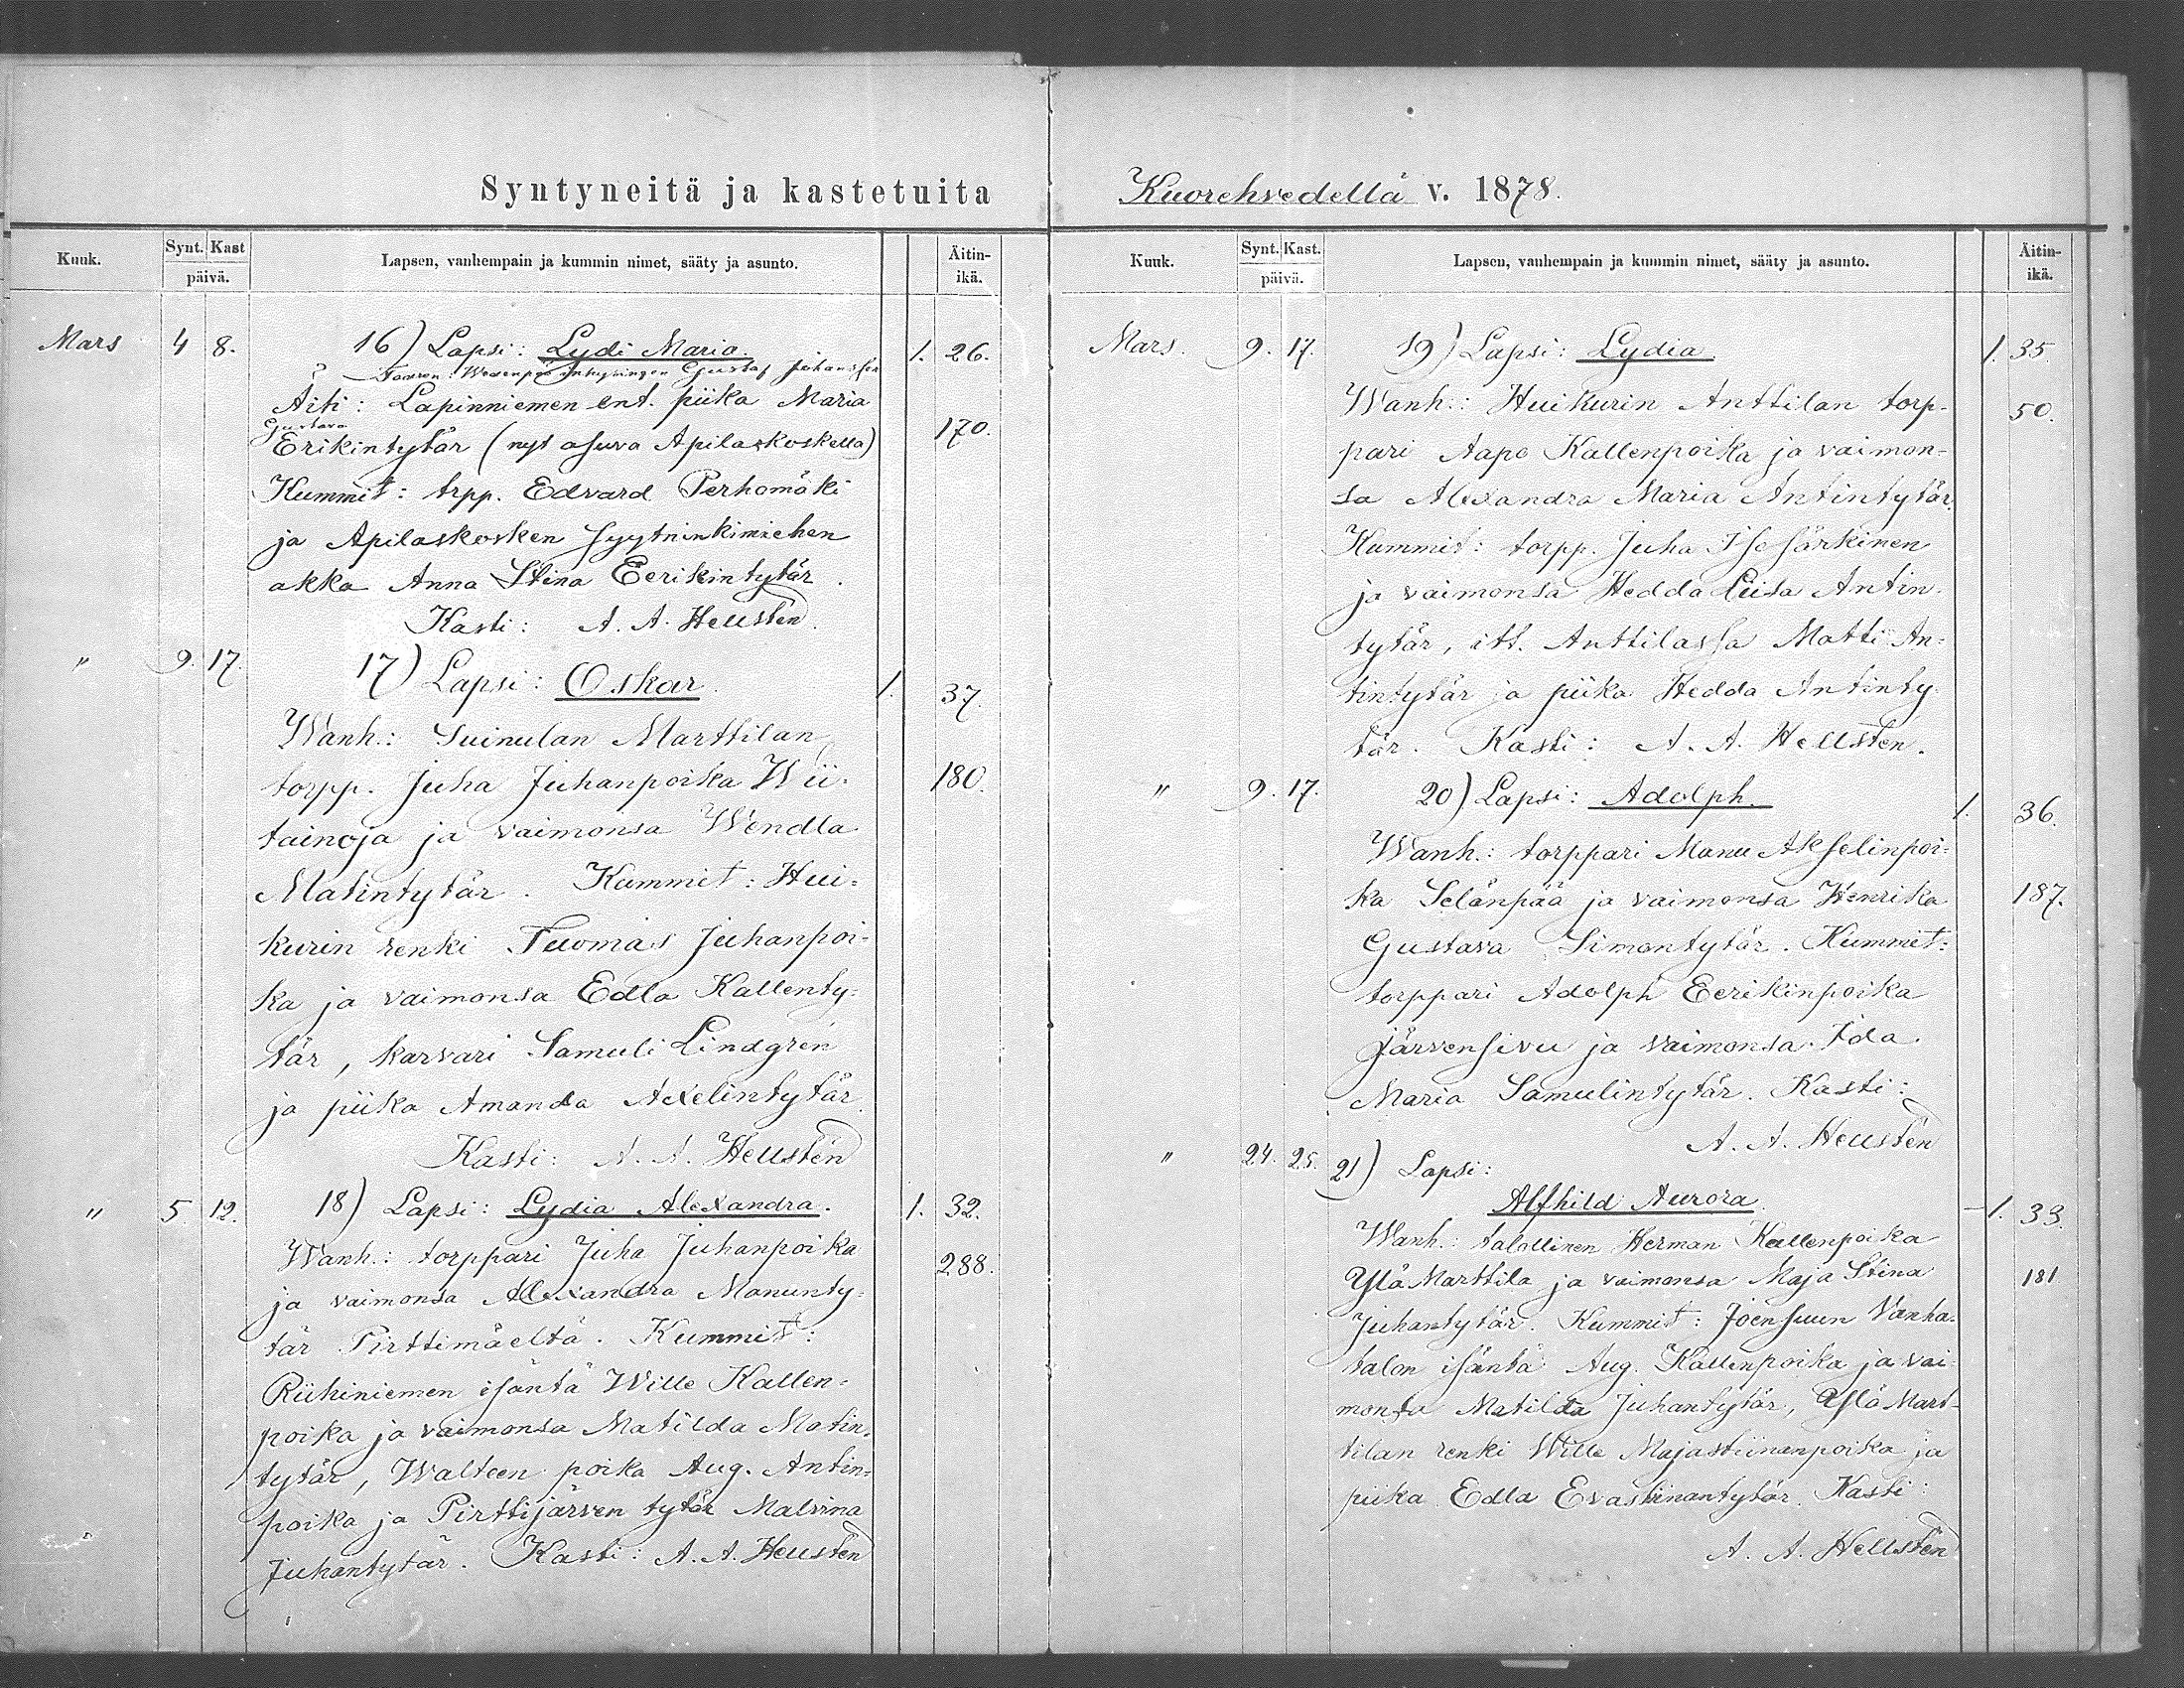 Syntyneitä ja kastetuita
Kuuk.
Synt. Kast
päivä.
Lapsen, vanhempain ja kummin nimet, sääty ja asunto.
Äitin-
ikä.
Mars 4 8. 16) Lapsi: Lydi Maria. 1. 26.
Gustaf Johansson
Äiti: Lapinniemen ent. piika Maria
Gustava
Erikintytär (nyt asuva Apilaskoskella) 170.
Kummit: trpp. Edvard Perhomäki
ja Apilaskosken syytninkimiehen
akka Anna Stina Eerikintytär.
Kasti: A. A. Hellstén.
" 9. 17. 17) Lapsi: Oskar. 1. 37.
Wanh.: Suinulan Marttilan
torpp. Juha Juhanpoika Wii- 180.
tainoja ja vaimonsa Wendla
Matintytär. Kummit: Hui-
kurin renki Tuomas Juhanpoi-
ka ja vaimonsa Edla Kallenty-
tär, karvari Samuli Lindgrén
ja piika Amanda Axelintytär.
Kasti: A. A. Hellstén
" 5. 12. 18) Lapsi: Lydia Alexandra. 1. 32.
Wanh.: torppari Juha Juhanpoika 288.
ja vaimonsa Alexandra Manunty-
tär Pirttimäeltä. Kummit:
Riihiniemen isäntä Wille Kallen-
poika ja vaimonsa Matilda Matin-
tytär, Walteen poika Aug. Antin-
poika ja Pirttijärven tytär Malvina
Juhantytär. Kasti: A. A. Hellstén
Kuorehvedellä v. 1878.
Kuuk.
Synt. Kast.
päivä.
Lapsen, vanhempain ja kummin nimet, sääty ja asunto.
Äitin-
ikä.
Mars. 9. 17. 19) Lapsi: Lydia. 1. 35.
Wanh.: Huikurin Anttilan torp- 50.
pari Aapo Kallenpoika ja vaimon-
sa Alexandra Maria Antintytär.
Kummit: torpp. Juha Isosärkinen
ja vaimonsa Hedda Liisa Antin-
tytär, itt. Anttilassa Matti An-
tintytär ja piika Hedda Antinty-
tär. Kasti: A. A. Hellstén.
" 9. 17. 20) Lapsi: Adolph. 1. 36.
Wanh.: torppari Manu Akselinpoi-
ka Selänpää ja vaimonsa Henrika 187.
Gustava Simontytär. Kummit:
torppari Adolph Eerikinpoika
Järvensivu ja vaimonsa Ida
Maria Samulintytär. Kasti:
A. A. Hellstén
" 24. 25. 21) Lapsi:
Alfhild Aurora. 1. 33.
Wanh.: talollinen Herman Kallenpoika
YläMarttila ja vaimonsa Maja Stina 181
Juhantytär. Kummit: Joensuun Vanha-
talon isäntä Aug. Kallenpoika ja vai-
monsa Matilda Juhantytär, YläMart-
tilan renki Wille Majastiinanpoika ja
piika Edla Evastiinantytär. Kasti:
A. A. Hellstén